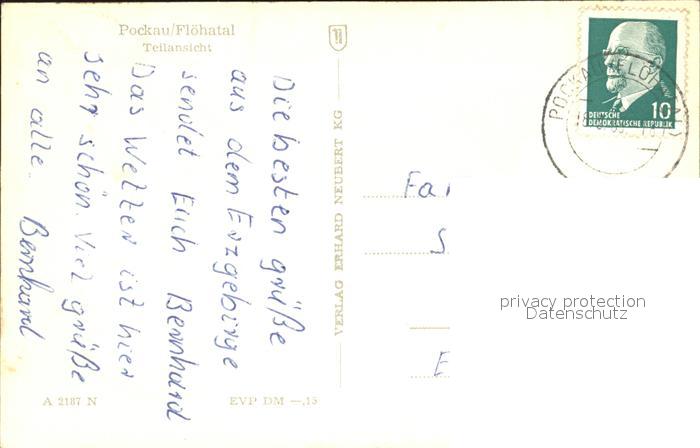 Pockau/Flöhatal
Teilansicht
Die besten grüße
aus dem Erzgebirge
sendet Euch Bernhard
Das Wetter ist hier
sehr schön. Viel grüße
an alle. Bernhard
A 2187 N
EVP DM —,15
VERLAG ERHARD NEUBERT KG
10
DEUTSCHE
DEMOKRATISCHE REPUBLIK
privacy protection
Datenschutz